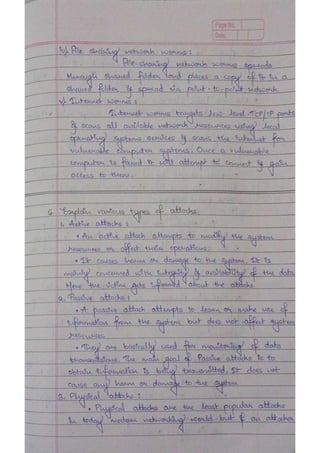 Page No.
Date
iv) File sharing network worms:
File-sharing network worms spreads
through shared folder and places a copy of it in a
shared folder & spread via point-to-point network
v) Internet worms:
Internet worms targets low level TCP/IP ports
& scans all available network resources using local
operating systems services & scans the internet for
vulnerable computer systems. Once a vulnerable
computer is found it will attempt to connect & gain
access to them.
6. Explain various types of attacks.
1. Active attacks:
• An active attack attempts to modify the system
resources or affect their operations.
• It causes harm or damage to the system. It is
mainly concerned with integrity & availability of the data
Here the victim gets informed about the attack
2. Passive attacks:
• A passive attack attempts to learn or make use of
information from the system but does not affect system
resources
• They are basically used for monitoring of data
transmissions. The main goal of Passive attacks is to
obtain information is being transmitted. It does not
cause any harm or damage to the system
3. Physical attacks:
• Physical attacks are the least popular attacks
in today modern networking world but if an attacker